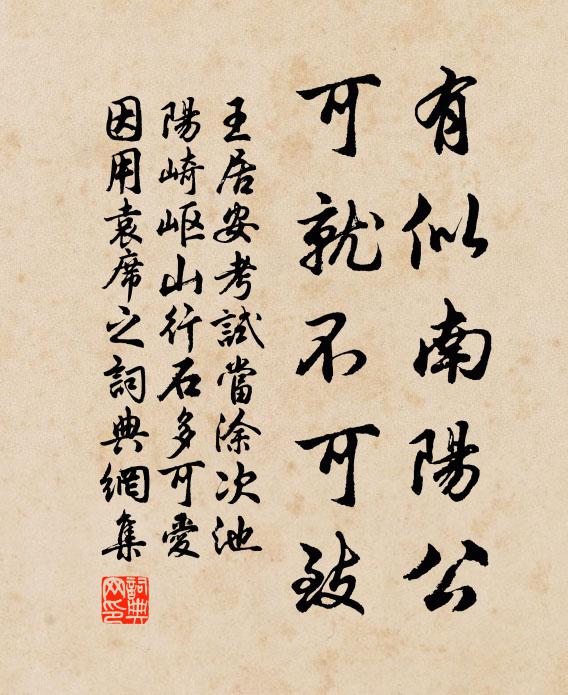 有似南陽公
可就不可致
王居安考試當涂次池
陽崎岖山行石多可愛
因用袁席之詞典網集
詞典
网印